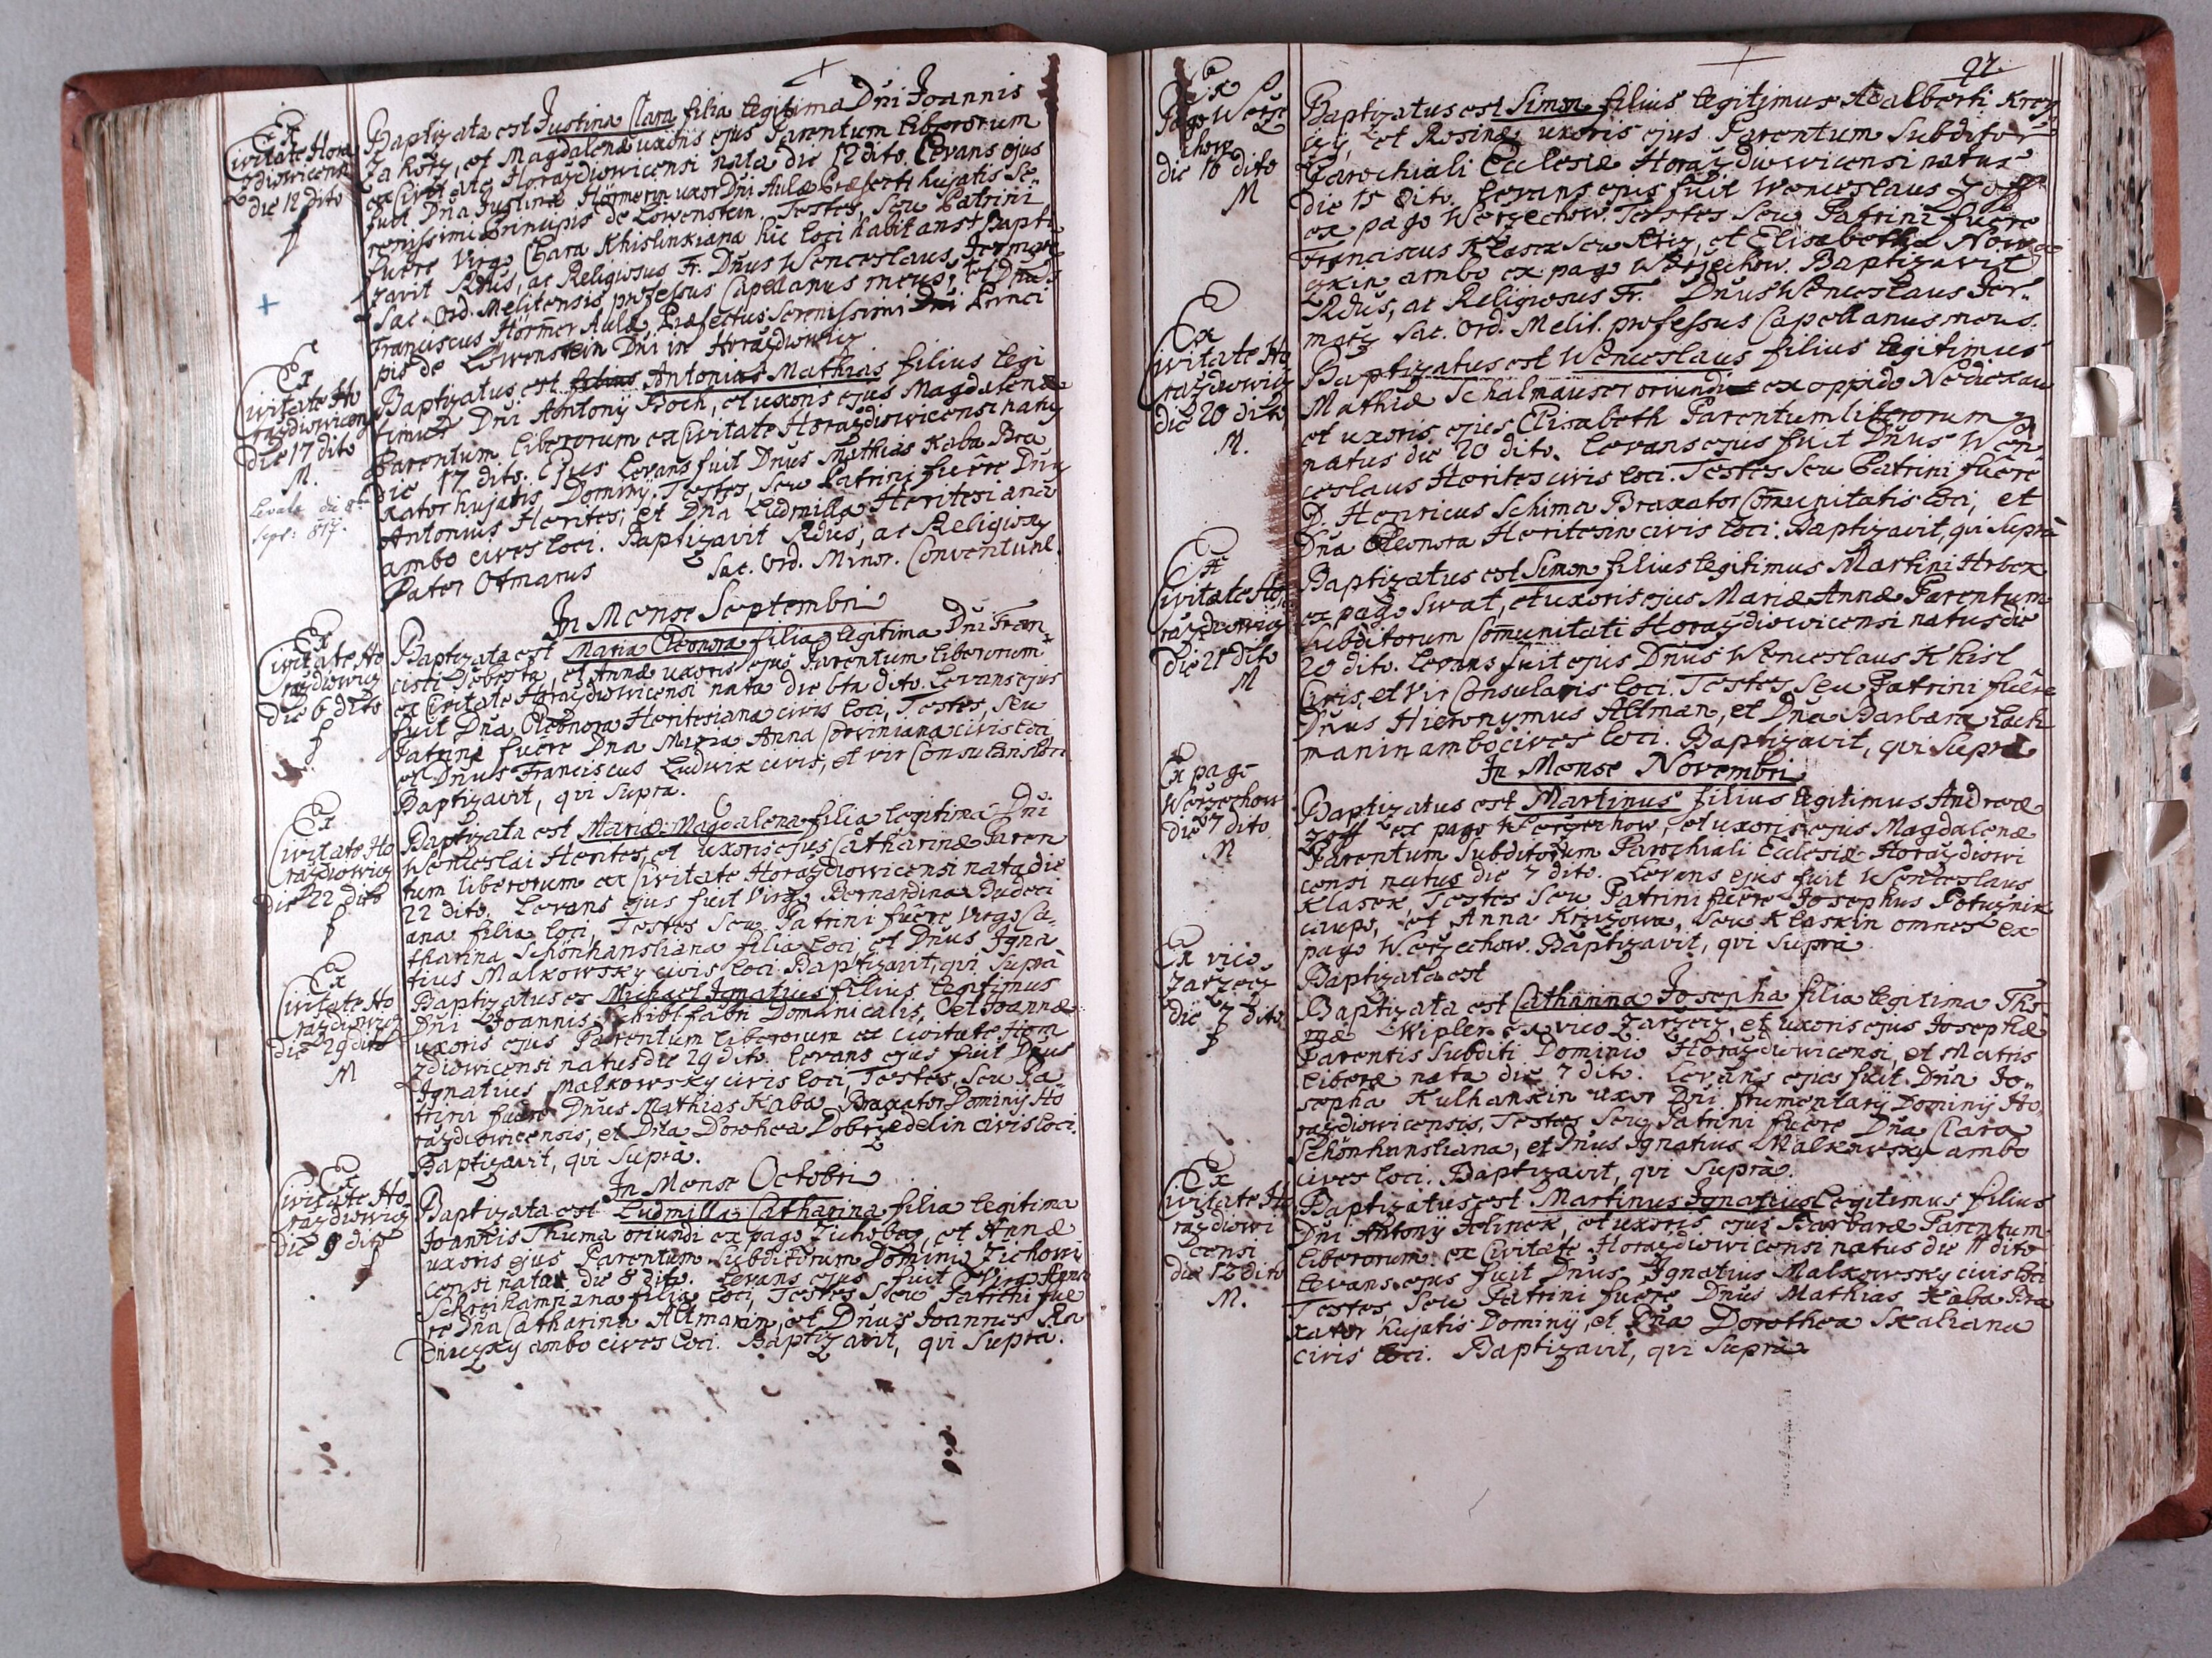 Ex
Civitate Hora
zdiowicens
die 12 dito
f
Baptizata est Justina Clara filia legitima Dni Joannis
Zahorz, et Magdalenæ uxoris ejus Parentum liberorum
ex Civitate Horazdiowicensi nata die 12 dito. Levans ejus
fuit Dna Justina uxor Dni Aulæ Præfecti hujatis Se-
renissimi Principis de Lowenstein. Testes, seu Patrini
fuere Virgo Clara Khislinkiana hic loci habitans. Bapti
zavit Rdus, ac Religiosus Fr. Dnus Wenceslaus Jermarz
Sac. Ord. Melitensis professus Capellanus meus, et Dnus
Franciscus Hörmer Aulæ Præfectus Serenissimi Dni Princi
pis de Lowenstein Dni in Horazdiowicz
Ex
Civitate Ho
razdiowicens
die 17 dito
M.
Baptizatus est filius Antonius Mathias filius legi
timus Dni Antonij Proch, et uxoris ejus Magdalenæ
Parentum liberorum ex Civitate Horazdiowicensi natus
die 17 dito. Ejus Levans fuit Dnus Mathias Kaba Bra
xator hujatis Dominij. Testes, seu Patrini fuêre Dnus
Antonius Herites, et Dna Ludmilla Heritesiana
ambo cives loci. Baptizavit Rdus, ac Religiosus
Pater Otmarus Sac. Ord. Minor. Conventual.
In Mense Septembri
Ex
Civitate Ho
razdiowicz
die 6 dito
f
Baptizata est Maria Eleonora filia legitima Dni Fran-
cisci Sebesta, et Annæ uxoris ejus Parentum liberorum
ex Civitate Horazdiowicensi nata die 6ta dito. Levans ejus
fuit Dna Eleonora Heritesiana civis loci, Testes, seu
Patrini fuere Dna Maria Anna Corviniana civis loci
et Dnus Franciscus Ludwik civis, et vir Consularis loci
Baptizavit, qui supra.
Ex
Civitate Ho
razdiowicz
die 22 dito
f
Baptizata est Maria Magdalena filia legitima Dni
Wenceslai Herites, et uxoris ejus Catharinæ Paren
tum liberorum ex Civitate Horazdiowicensi nata die
22 dito. Levans ejus fuit Virgo Bernardina Dudeci
ana filia loci, Testes seu Patrini fuêre Virgo Ca-
tharina Schönhansliana filia loci, et Dnus Igna
tius Malkowsky civis loci. Baptizavit, qui supra
Ex
Civitate Ho
razdiowicz
die 29 dito
M
Baptizatus es Michael Ignatius filius legitimus
Dni Joannis fabri Dominicalis, et Joannæ
uxoris ejus Parentum liberorum ex Civitate Hora
zdiowicensi natus die 29 dito. Levans ejus fuit Dnus
Ignatius Malkowsky civis loci, Testes, seu Pa
trini fuêre Dnus Mathias Kaba Braxator Dominij Ho
razdiowicensis, et Dna Dorothea Dobrzedelin civis loci.
Baptizavit, qui supra.
In Mense Octobri
Ex
Civitate Ho
razdiowicz
die 9 dito
f
Baptizata est Ludmilla Catharina filia legitima
Joannis Thuma oriundi ex pago et Annæ
uxoris ejus Parentum subditorum Dominio Zichowi
censi nata die 8 dito. Levans ejus fuit Virgo Anna
filia loci, Testes seu Patrini fue
re Dna Catharina Altmanin, et Dnus Joannes
ambo cives loci. Baptizavit, qui supra.
97.
Ex
Pago Worze
chow
die 16 dito
M
Baptizatus est Simon filius legitimus Adalberti
et Rosinæ uxoris ejus Parentum subditor
Parochiali Ecclesiæ Horazdiowicensi natus
die 15 dito. Levans ejus fuit Wenceslaus Zoff
ex pago Worzechow. Testes seu Patrini fuêre
Franciscus Klasek seu et Elisabetha
ambo ex pago Worzechow. Baptizavit
Rdus, ac Religiosus Fr. Dnus Wenceslaus Jer-
marz Sac. Ord. Melit. professus Capellanus meus.
Ex
Civitate Ho
razdiowicz
die 20 dito
M.
Baptizatus est Wenceslaus filius legitimus
Mathiæ Schalmauser oriundi ex oppido
et uxoris ejus Elisabeth Parentum liberorum
natus die 20 dito. Levans ejus fuit Dnus Wen
ceslaus Herites civis loci. Testes seu Patrini fuêre
D. Henricus Schima Braxator Communitatis loci, et
Dna Eleonora Heritesin civis loci. Baptizavit, qui supra
Ex
Civitate Ho
razdiowicz
die 21 dito
M
Baptizatus est Simon filius legitimus Martini Hrbek
ex pago Swat, et uxoris ejus Mariæ Annæ Parentum
subditorum Communitati Horazdiowicensi natus die
20 dito. Levans fuit ejus Dnus Wenceslaus Khisl
civis, et Vir Consularis loci. Testes, seu Patrini fuêre
Dnus Hieronymus Altman, et Dna Barbara Lach
manin ambo cives loci. Baptizavit, qui supra
In Mense Novembri
Ex pago
Worzechow
die 7 dito
M
Baptizatus est Martinus filius legitimus Andreæ
Zoff ex pago Worzechow, et uxoris ejus Magdalenæ
Parentum subditorum Parochiali Ecclesiæ Horazdiowi
censi natus die 7 dito. Levans ejus fuit Wenceslaus
Klasek, Testes seu Patrini fuêre Josephus Potuznik
et Anna seu Klaskin omnes ex
pago Worzechow. Baptizavit, qui supra
Baptizata est
Ex vico
Zarzecz
die 7 dito
f
Baptizata est Catharina Josepha filia legitima Tho
mæ Wipler ex vico Zarzecz, et uxoris ejus Josephæ
Parentis subditi Dominio Horazdiowicensi, et Matris
liberæ nata die 7 dito. Levans ejus fuit Dna Jo-
sepha Kulhankin uxor Dni frumentarij Dominij Ho
razdiowicensis, Testes seu Patrini fuêre Dna Clara
Schönhansliana, et Dnus Ignatius Malkowsky ambo
cives loci. Baptizavit, qui supra.
Ex
Civitate Ho
razdiowi
censi
die 12 dito
M.
Baptizatus est Martinus Ignatius legitimus filius
Dni Antonij Jelinek, et uxoris ejus Barbaræ Parentum
liberorum ex Civitate Horazdiowicensi natus die 11 dito
Levans ejus fuit Dnus Ignatius Malkowsky civis loci
Testes, seu Patrini fuêre Dnus Mathias Kaba Bra
xator hujatis Dominij, et Dna Dorothea Skaliana
civis loci. Baptizavit, qui supra